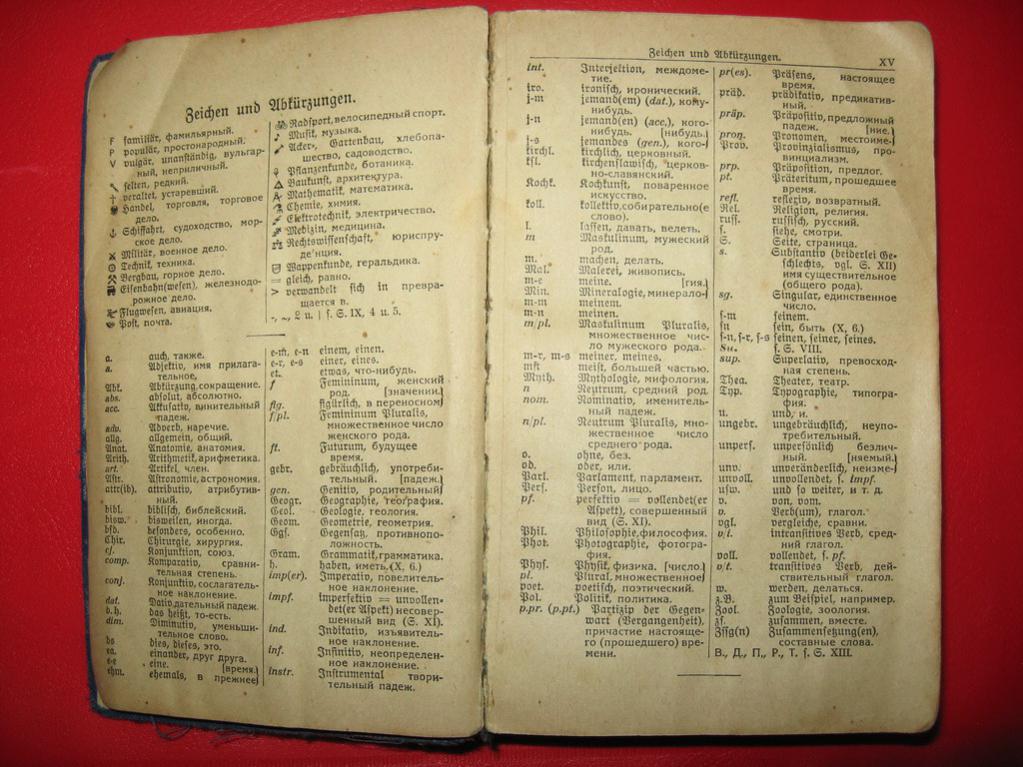 Zeichen und Abkürzungen.
F familiär, фамильярный.
P populär, простонародный.
V vulgär, unanständig, вульгар-
ный, неприличный.
selten, редкий.
† veraltet, устаревший.
Handel, торговля, торговое
дело.
Schiffahrt, судоходство, мор-
ское дело.
Militär, военное дело.
Technik, техника.
Bergbau, горное дело.
Eisenbahn(wesen), железнодо-
рожное дело.
Flugwesen, авиация.
Post, почта.
Radsport, велосипедный спорт.
Musik, музыка.
Acker-, Gartenbau, хлебопа-
шество, садоводство.
Pflanzenkunde, ботаника.
Baukunst, архитектура.
Mathematik, математика.
Chemie, химия.
Elektrotechnik, электричество.
Medizin, медицина.
Rechtswissenschaft, юриспру-
денция.
Wappenkunde, геральдика.
= gleich, равно.
> verwandelt sich in превра-
щается в.
f. S. IX, 4 u. 5.
a. auch, также.
a. Adjektiv, имя прилага-
тельное.
Abk. Abkürzung, сокращение.
abs. absolut, абсолютно.
acc. Akkusativ, винительный
падеж.
adv. Adverb, наречие.
allg. allgemein, общий.
Anat. Anatomie, анатомия.
Arith. Arithmetik, арифметика.
art. Artikel, член.
Astr. Astronomie, астрономия.
attr(ib). attributiv, атрибутив-
ный.
bibl. biblisch, библейский.
bisw. bisweilen, иногда.
bsd. besonders, особенно.
Chir. Chirurgie, хирургия.
cj. Konjunktion, союз.
comp. Komparativ, сравни-
тельная степень.
conj. Konjunktiv, сослагатель-
ное наклонение.
dat. Dativ, дательный падеж.
d.h. das heißt, то-есть.
dim. Diminutiv, уменьши-
тельное слово.
ds dies, dieses, это.
ea. einander, друг друга.
e-e eine. [время.]
ehm. ehemals, в прежнее
e-m, e-n einem, einen.
e-r, e-s einer, eines.
et. etwas, что-нибудь.
f Femininum, женский
род. [значении.]
fig. figürlich, в переносном
f/pl. Femininum Pluralis,
множественное число
женского рода.
ft. Futurum, будущее
время.
gebr. gebräuchlich, употреби-
тельный. [падеж.]
gen. Genitiv, родительный
Geogr. Geographie, география.
Geol. Geologie, геология.
Geom. Geometrie, геометрия.
Ggs. Gegensatz, противнопо-
ложность.
Gram. Grammatik, грамматика.
h. haben, иметь. (X, 6.)
imp(er). Imperativ, повелитель-
ное наклонение.
impf. imperfektiv = unvollen-
det(er Aspekt) несовер-
шенный вид (S. XI).
ind. Indikativ, изъявитель-
ное наклонение.
inf. Infinitiv, неопределен-
ное наклонение.
instr. Instrumental твори-
тельный падеж.
Zeichen und Abkürzungen. XV
int. Interjektion, междоме-
тие.
iro. ironisch, иронический.
j-m jemand(em) (dat.), кому-
нибудь.
j-n jemand(en) (acc.), кого-
нибудь. [нибудь.]
j-s jemandes (gen.), кого-
kirchl. kirchlich, церковный.
ksl. kirchenslawisch, церков-
но-славянский.
Kochk. Kochkunst, поваренное
искусство.
koll. kollektiv, собирательно(е
слово).
l. lassen, давать, велеть.
m Maskulinum, мужеский
род.
m. machen, делать.
Mal. Malerei, живопись.
m-e meine. [гия.]
Min. Mineralogie, минерало-
m-m meinem.
m-n meinen.
m/pl. Maskulinum Pluralis,
множественное чис-
ло мужеского рода.
m-r, m-s meiner, meines.
mst meist, большей частью.
Myth. Mythologie, мифология.
n Neutrum, средний род.
nom. Nominativ, именитель-
ный падеж.
n/pl. Neutrum Pluralis, мно-
жественное число
среднего рода.
o. ohne, без.
od. oder, или.
Parl. Parlament, парламент.
Pers. Person, лицо.
pf. perfektiv = vollendet(er
Aspekt), совершенный
вид (S. XI).
Phil. Philosophie, философия.
Phot. Photographie, фотогра-
фия.
Phys. Physik, физика. [число.]
pl. Plural, множественное
poet. poetisch, поэтический.
Pol. Politik, политика.
p.pr. (p.pt.) Partizip der Gegen-
wart (Vergangenheit),
причастие настояще-
го (прошедшего) вре-
мени.
pr(es). Präsens, настоящее
время.
präd. prädikativ, предикатив-
ный.
präp. Präpositiv, предложный
падеж. [ние.]
pron. Pronomen, местоиме-
Prov. Provinzialismus, про-
винциализм.
prp. Präposition, предлог.
pt. Präteritum, прошедшее
время.
refl. reflexiv, возвратный.
Rel. Religion, религия.
russ. russisch, русский.
s. siehe, смотри.
S. Seite, страница.
s. Substantiv (beiderlei Ge-
schlechts, vgl. S. XII)
имя существительное
(общего рода).
sg. Singular, единственное
число.
s-m seinem.
sn sein, быть (X, 6.)
s-n, s-r, s-s seinen, seiner, seines.
f. S. VIII.
sup. Superlativ, превосход-
ная степень.
Thea. Theater, театр.
Typ. Typographie, типогра-
фия.
u. und, и.
ungebr. ungebräuchlich, неупо-
требительный.
unpers. unpersönlich, безлич-
ный. [няемый.]
unv. unveränderlich, неизме-
unvoll. unvollendet, s. impf.
usw. und so weiter, и т. д.
v. von, vom.
v. Verb(um), глагол.
vgl. vergleiche, сравни.
v/i. intransitives Verb, сред-
ний глагол.
voll. vollendet, s. pf.
v/t. transitives Verb, дей-
ствительный глагол.
w. werden, делаться.
z.B. zum Beispiel, например.
Zool. Zoologie, зоология.
zs. zusammen, вместе.
Zssg(n) Zusammensetzung(en),
составные слова.
В., Д., П., Р., Т. s. S. XIII.